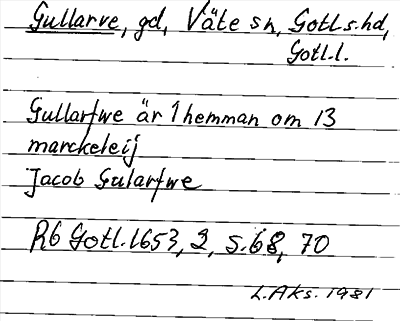 Gullarve, gd, Väte sn, Gotl.s.hd,
Gotl.l.
Gullarfwe är 1 hemman om 13
marckeleij
Jacob Gularfwe
Rb Gotl. 1653, 2, s. 68, 70
L. Aks. 1981